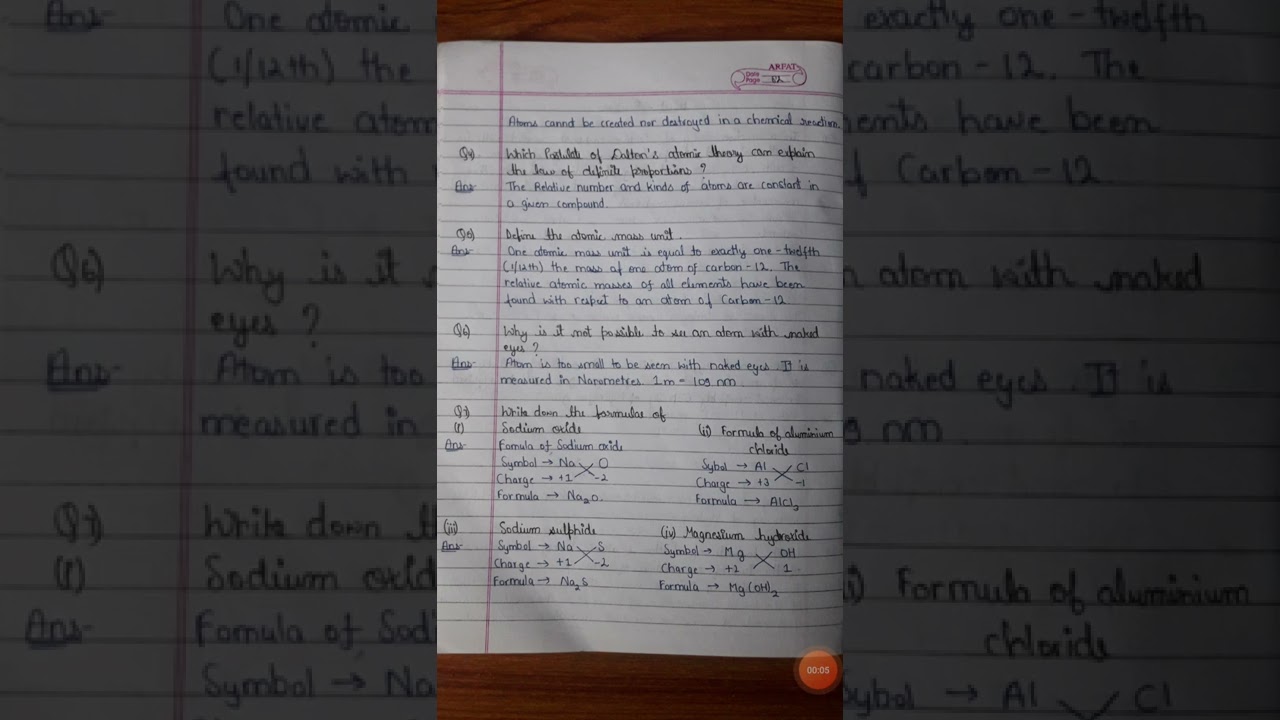 ARFAT
Date
Page 52
Atoms cannd be created nor destroyed in a chemical reaction.
Q4) Which Postulate of Dalton's atomic theory can explain
the law of definite proportions ?
Ans The Relative number and kinds of atoms are constant in
a given compound.
Q5) Define the atomic mass unit.
Ans One atomic mass unit is equal to exactly one-twelfth
(1/12th) the mass of one atom of carbon-12. The
relative atomic masses of all elements have been
found with respect to an atom of Carbon-12
Q6) Why is it not possible to see an atom with naked
eyes ?
Ans Atom is too small to be seen with naked eyes. It is
measured in Nanometres. 1m = 109 nm
Q7) Write down the formulae of
(i) Sodium oxide (ii) Formula of aluminium
chloride
Ans Fomula of Sodium oxide
Symbol → Na O Sybol → Al Cl
Charge → +1 -2 Charge → +3 -1
Formula → Na2O. Formula → AlCl3
(iii) Sodium sulphide (iv) Magnesium hydroxide
Ans Symbol → Na S Symbol → Mg OH
Charge → +1 -2 Charge → +2 1
Formula → Na2S Formula → Mg(OH)2
00:05